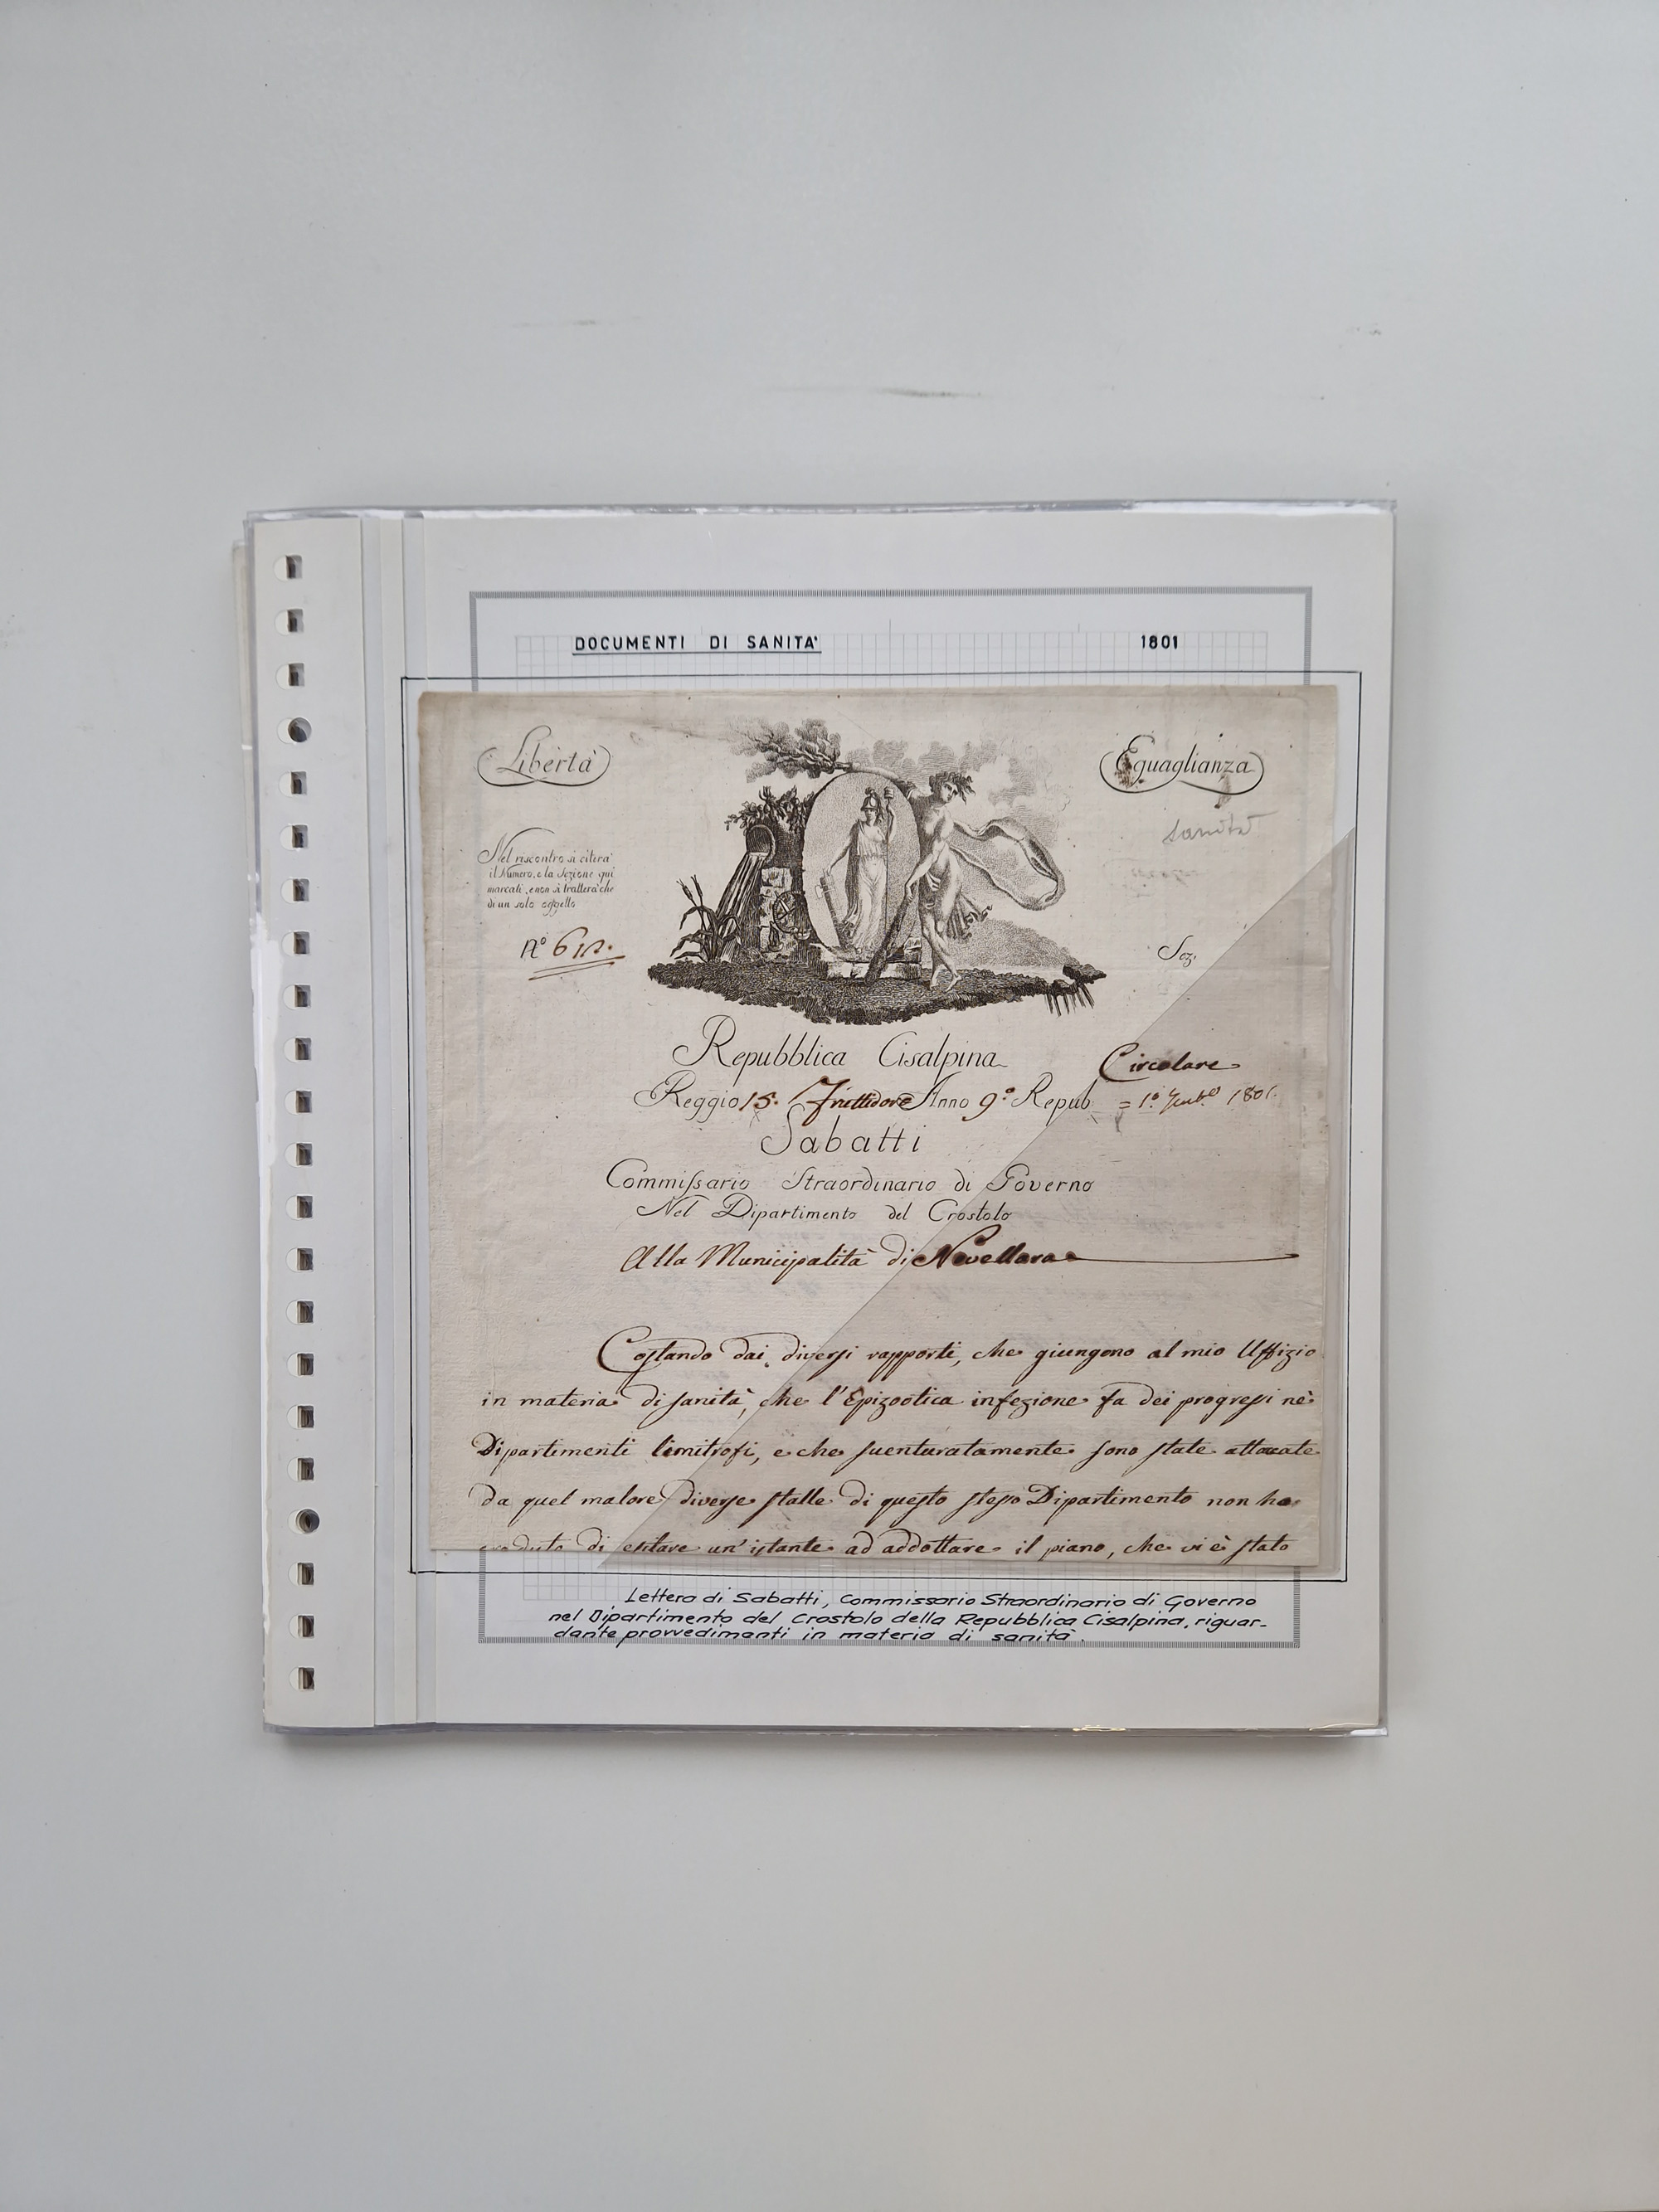 DOCUMENTI DI SANITA' 1801
Libertà
Eguaglianza
sanità
Nel riscontro si citerà
il Numero, e la Sezione qui
marcati, e non si tratterà che
di un solo oggetto
N.º
Sez.
Repubblica Cisalpina
Circolare
Reggio 15. Fruttidore Anno 9.º Repub = 1801.
Sabatti
Commissario Straordinario di Governo
Nel Dipartimento del Crostolo
Alla Municipalità di Novellara
Costando dai diversi rapporti, che giungono al mio Uffizio
in materia di sanità, che l'Epizootica infezione fa dei progressi nè
Dipartimenti limitrofi, e che sventuratamente sono state attaccate
da quel malore diverse stalle di questo stesso Dipartimento non ho
creduto di esitare un'istante ad addottare il piano, che vi è stato
Lettera di Sabatti, Commissario Straordinario di Governo
nel Dipartimento del Crostolo della Repubblica Cisalpina, riguar-
dante provvedimenti in materia di sanità.